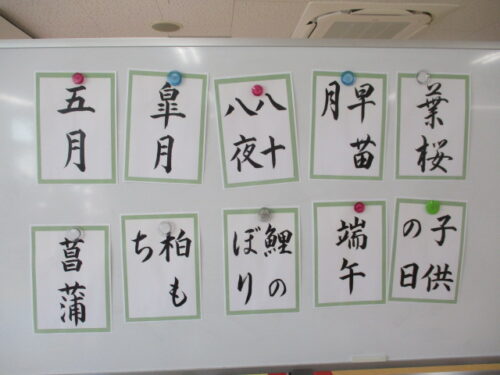 五月
皐月
八十
八夜
早苗
月
葉桜
菖蒲
柏も
ち
鯉の
ぼり
端午
子供
の日